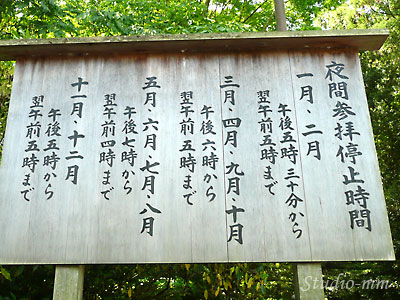 夜間参拝停止時間
一月、二月
午後五時三十分から
翌午前五時まで
三月、四月、九月、十月
午後六時から
翌午前五時まで
五月、六月、七月、八月
午後七時から
翌午前四時まで
十一月、十二月
午後五時から
翌午前五時まで
Studio-mm